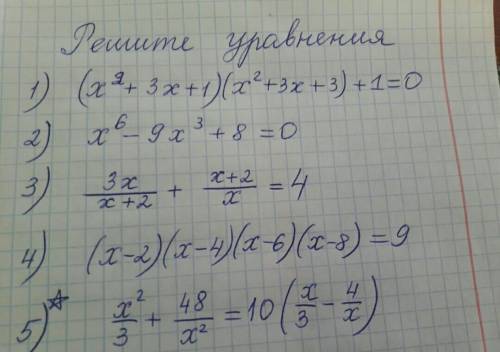 Решите уравнения
1) (x² + 3x + 1)(x² + 3x + 3) + 1 = 0
2) x⁶ - 9x³ + 8 = 0
3) 3x/(x+2) + (x+2)/x = 4
4) (x-2)(x-4)(x-6)(x-8) = 9
5)* x²/3 + 48/x² = 10(x/3 - 4/x)